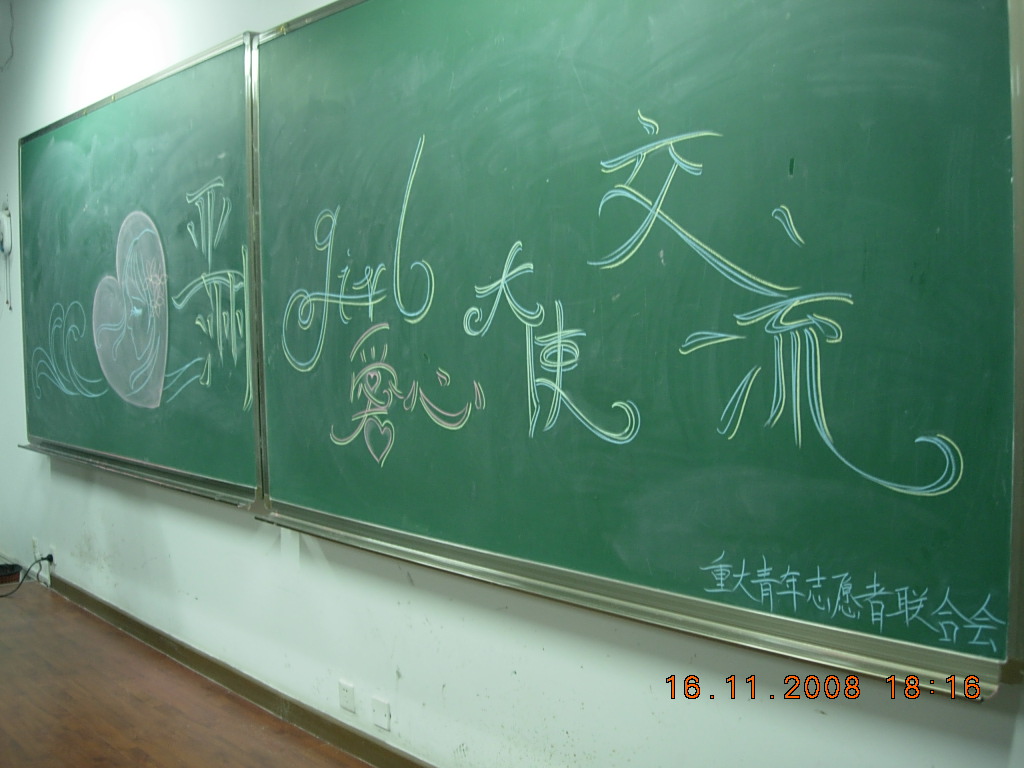 亚丽
girl
愛心
大使
交流
重大青年志愿者联合会
16.11.2008 18:16